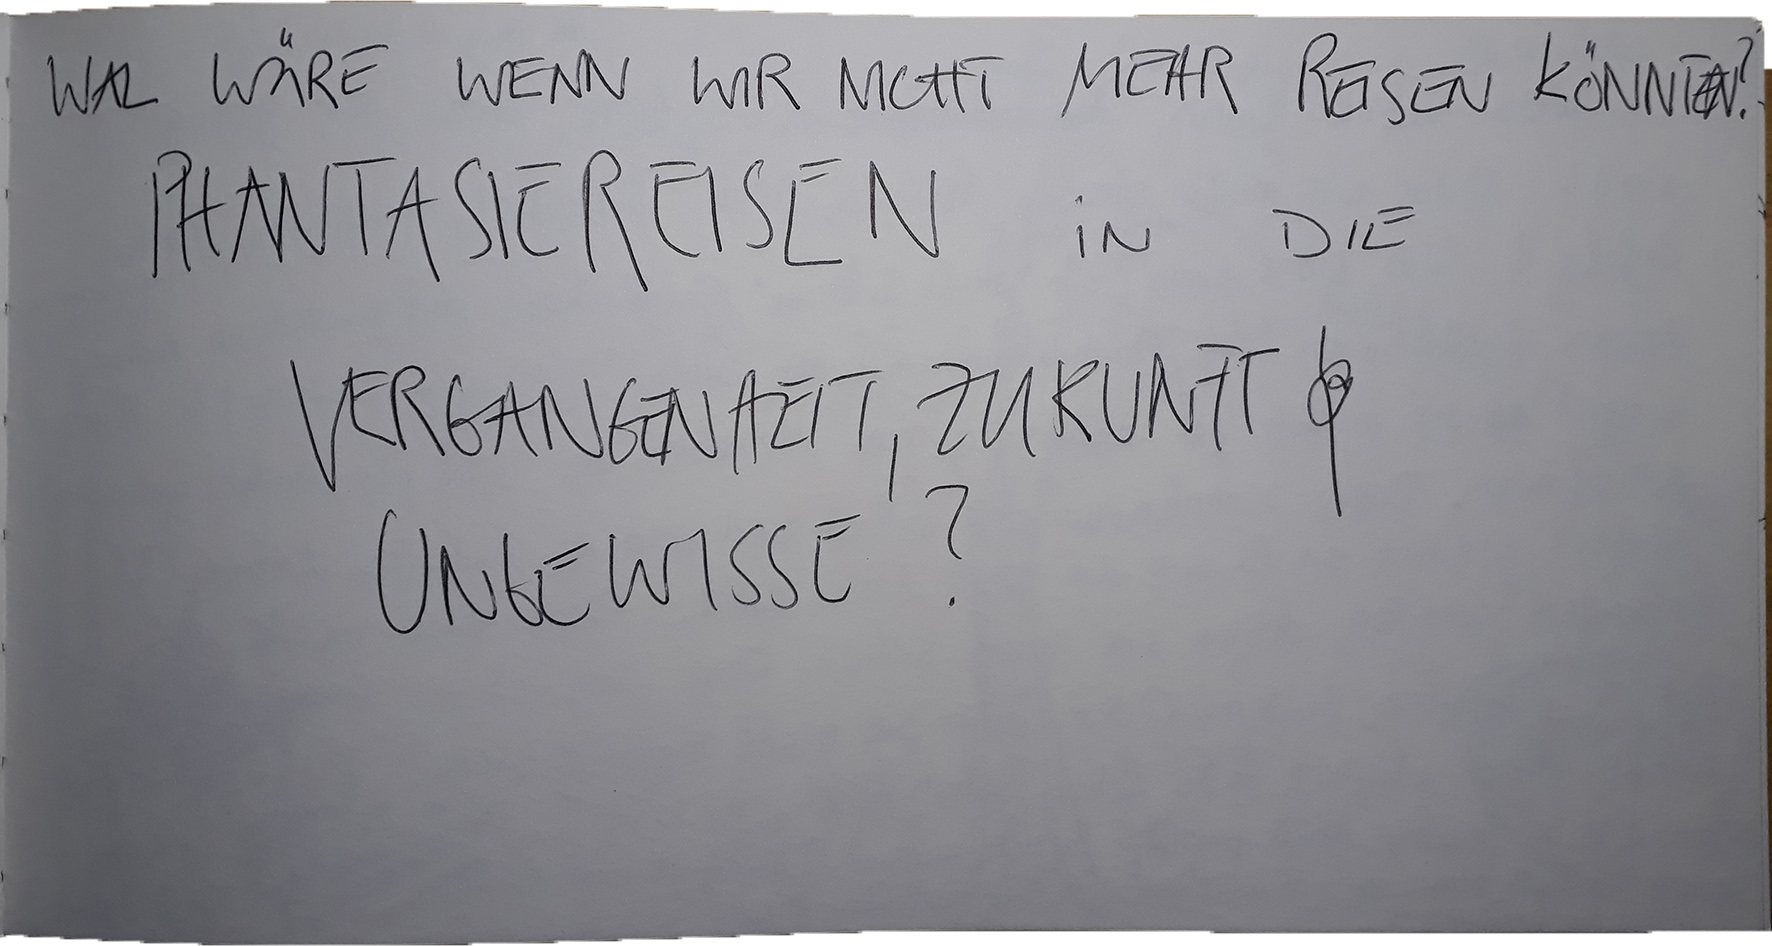 WAS WÄRE WENN WIR NICHT MEHR REISEN KÖNNTEN?
PHANTASIEREISEN IN DIE
VERGANGENHEIT, ZUKUNFT &
UNGEWISSE?